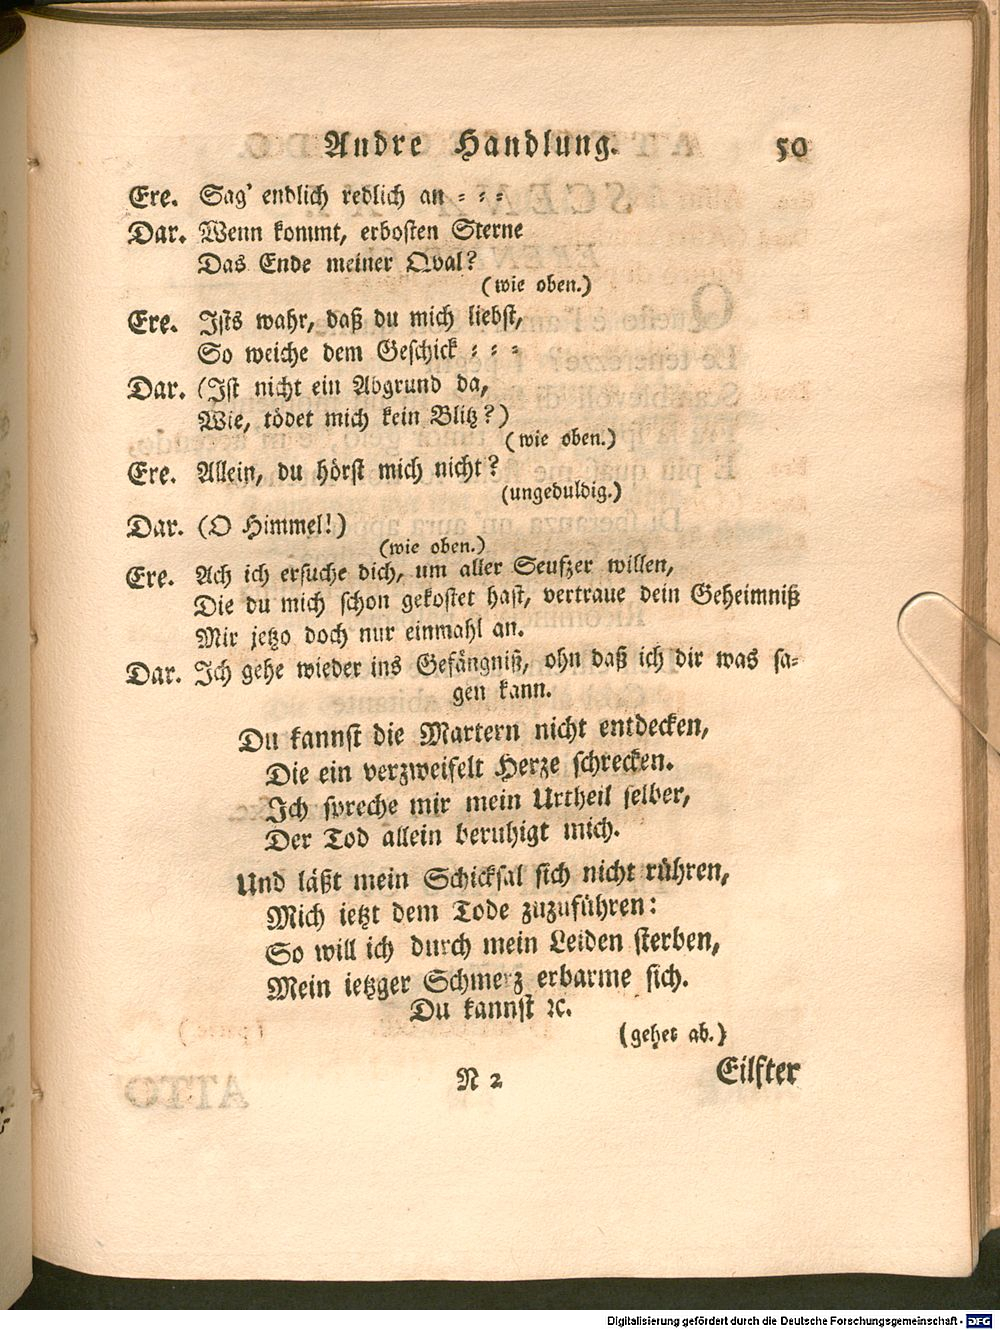 Andre Handlung. 50
Ere. Sag' endlich redlich an = = =
Dar. Wenn kommt, erbosten Sterne
Das Ende meiner Qval?
(wie oben.)
Ere. Ists wahr, daß du mich liebst,
So weiche dem Geschick = = =
Dar. (Ist nicht ein Abgrund da,
Wie, tödet mich kein Blitz?)
(wie oben.)
Ere. Allein, du hörst mich nicht?
(ungeduldig.)
Dar. (O Himmel!)
(wie oben.)
Ere. Ach ich ersuche dich, um aller Seufzer willen,
Die du mich schon gekostet hast, vertraue dein Geheimniß
Mir jetzo doch nur einmahl an.
Dar. Ich gehe wieder ins Gefängniß, ohn daß ich dir was sa-
gen kann.
Du kannst die Martern nicht entdecken,
Die ein verzweifelt Herze schrecken.
Ich spreche mir mein Urtheil selber,
Der Tod allein beruhigt mich.
Und läßt mein Schicksal sich nicht rühren,
Mich ietzt dem Tode zuzuführen:
So will ich durch mein Leiden sterben,
Mein ietzger Schmerz erbarme sich.
Du kannst ꝛc.
(gehet ab.)
N 2 Eilfter
Digitalisierung gefördert durch die Deutsche Forschungsgemeinschaft - DFG